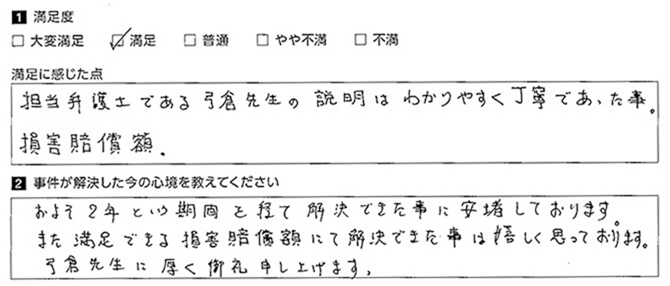 1 満足度
□ 大変満足 ☑ 満足 □ 普通 □ やや不満 □ 不満
満足に感じた点
担当弁護士である弓倉先生の説明はわかりやすく丁寧であった事。
損害賠償額.
2 事件が解決した今の心境を教えてください
およそ2年という期間を経て解決できた事に安堵しております。
また満足できる損害賠償額にて解決できた事は嬉しく思っております。
弓倉先生に厚く御礼申し上げます。